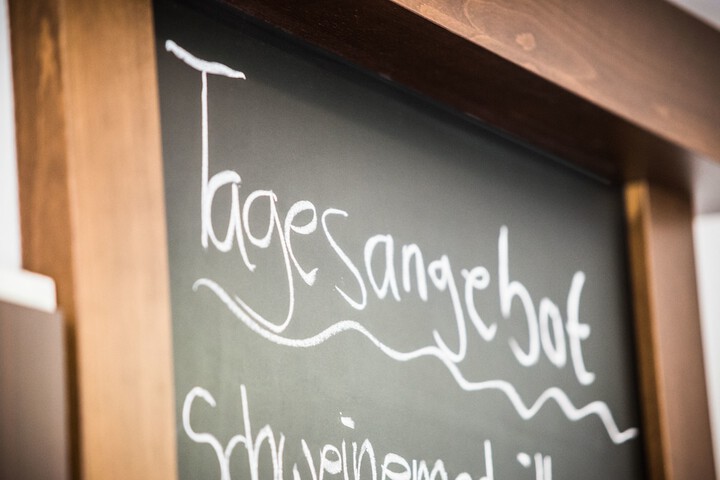 Tagesangebot
Schweinemedaill